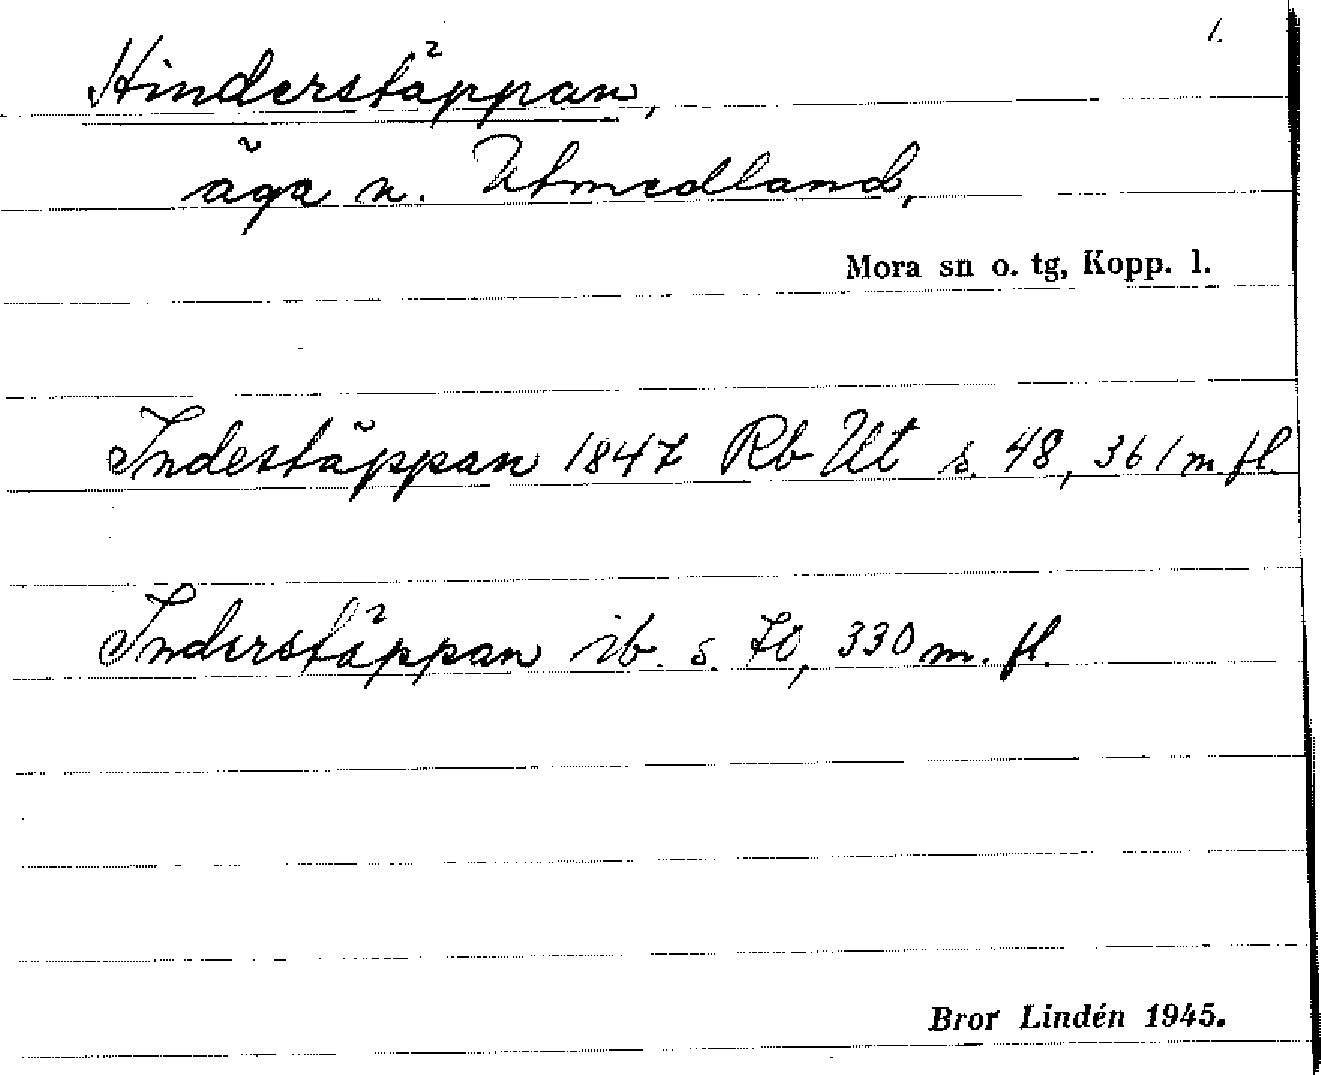 1.
Hinderstäppan,
äga n. Utmedland,
Mora sn o. tg, Kopp. l.
Indestäppan 1847 Rb Ut s. 48, 361 m. fl.
Inderstäppan ib. s. 70, 330 m. fl.
Bror Lindén 1945.